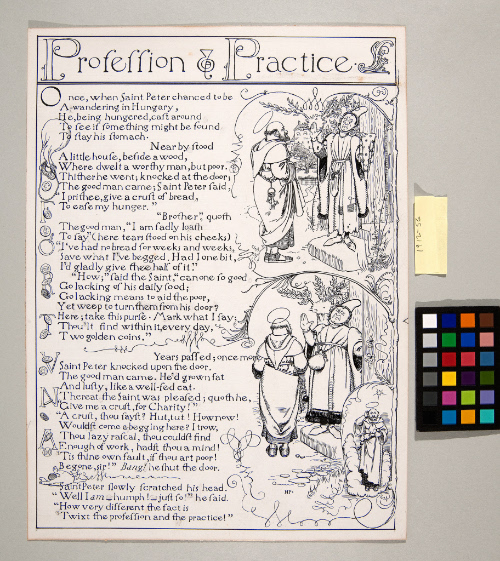 Profession & Practice.
Once, when Saint Peter chanced to be
A-wandering in Hungary,
He, being hungered, cast around
To see if something might be found
To stay his stomach.
Near by stood
A little house, beside a wood,
Where dwelt a worthy man, but poor.
Thither he went; knocked at the door;
The good man came; Saint Peter said,
"I prithee, give a crust of bread,
To ease my hunger."
"Brother," quoth
The good man, "I am sadly loath
To say" (here tears stood on his cheeks)
"I've had no bread for weeks and weeks,
Save what I've begged. Had I one bit,
I'd gladly give thee half of it."
"How," said the Saint, "can one so good
Go lacking of his daily food;
Go lacking means to aid the poor,
Yet weep to turn them from his door?
Here; take this purse. Mark what I say:
Thou'lt find within it, every day,
Two golden coins."
Years passed; once more
Saint Peter knocked upon the door.
The good man came. He'd grown fat
And lusty, like a well-fed cat.
Thereat the Saint was pleased; quoth he,
"Give me a crust, for Charity!"
"A crust, thou sayst? Hut, tut! How now!
Wouldst come a-begging here? I trow,
Thou lazy rascal, thou couldst find
Enough of work, hadst thou a mind!
'Tis thine own fault, if thou art poor!
Begone, sir!" Bang! he shut the door.
Saint Peter slowly scratched his head.
"Well I am—humph!—just so!" he said.
"How very different the fact is
'Twixt the profession and the practice!"
HP.